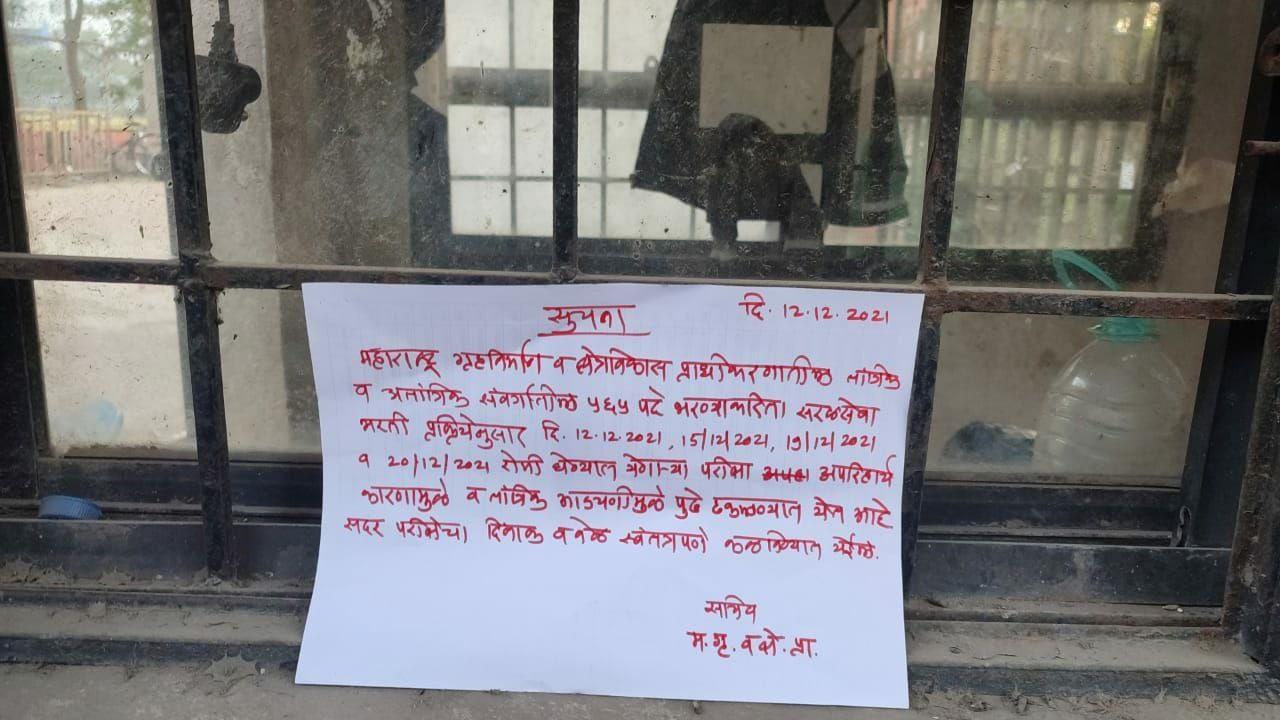 सुचना
दि. 12.12.2021
महाराष्ट्र गृहनिर्माण व क्षेत्रविकास प्राधीकरणातील तांत्रिक
व अतांत्रिक संवर्गातील ५६५ पदे भरण्याकरिता सरळसेवा
भरती प्रक्रियेनुसार दि. 12.12.2021, 15/12/2021, 19/12/2021
व 20/12/2021 रोजी घेण्यात येणाऱ्या परीक्षा अपरिहार्य
कारणामुळे व तांत्रिक अडचणींमुळे पुढे ढकलण्यात येत आहे
सदर परीक्षेचा दिनांक व वेळ स्वंतत्रपणे कळविण्यात येईल.
सचिव
म.गृ. व क्षे. प्रा.